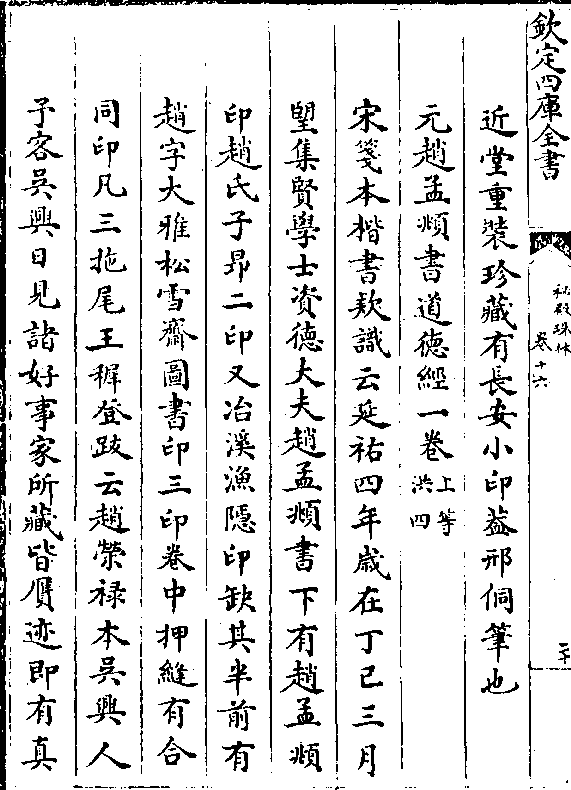 欽定四庫全書
秘殿珠林
卷十六
二十
近堂重裝珍藏有長安小印葢邢侗筆也
元趙孟頫書道德經一卷上等洪四
宋箋本楷書欵識云延祐四年嵗在丁巳三月
朢集賢學士資德大夫趙孟頫書下有趙孟頫
印趙氏子昻二印又冶溪漁隱印缺其半前有
趙字大雅松雪齋圖書印三印卷中押縫有合
同印凡三拖尾王穉登跋云趙榮禄本吳興人
子客吳興日見諸好事家所藏皆贋迹即有真